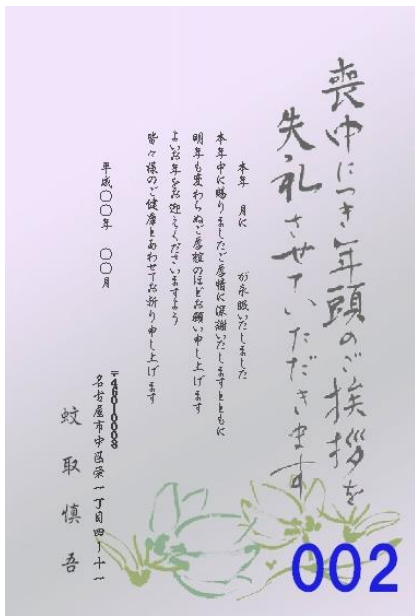 喪中につき年頭のご挨拶を
失礼させていただきます
本年　月に　　が永眠いたしました
本年中に賜りましたご厚情に深謝いたしますとともに
明年も変わらぬご厚誼のほどお願い申し上げます
よいお年をお迎えくださいますよう
皆々様のご健康とあわせてお祈り申し上げます
平成〇〇年　〇〇月
〒460-0008
名古屋市中区栄一丁目四ー十一
蚊取慎吾
002